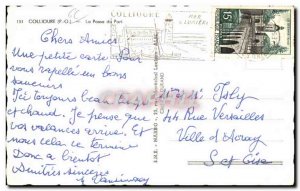 151 COLLIOURE (P.-O.) La Passe du Port
COLLIOURE
MER
LUMIÈRE
15F
Chers Amis
Une petite carte Pour
vous rappeler un bons
souvenirs
Ici toujours beau
et chaud. Je pense que
vos vacances arrive. Et
nous cela ce termine
Donc a bientot
Amitiés sincères
44 Rue Versailles
Ville d'Avray
S et Oise